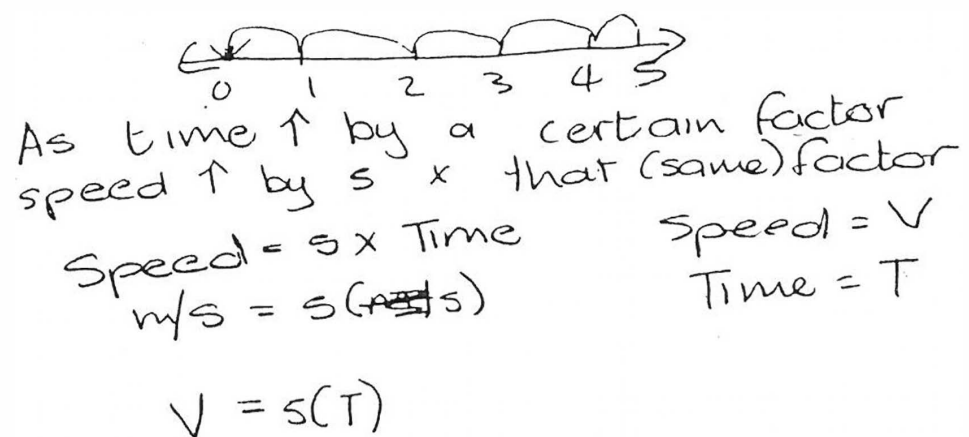 0 1 2 3 4 5
As time ↑ by a certain factor
speed ↑ by 5 x that (same) factor
Speed = 5 x Time
Speed = V
m/s = 5( s)
Time = T
V = 5(T)